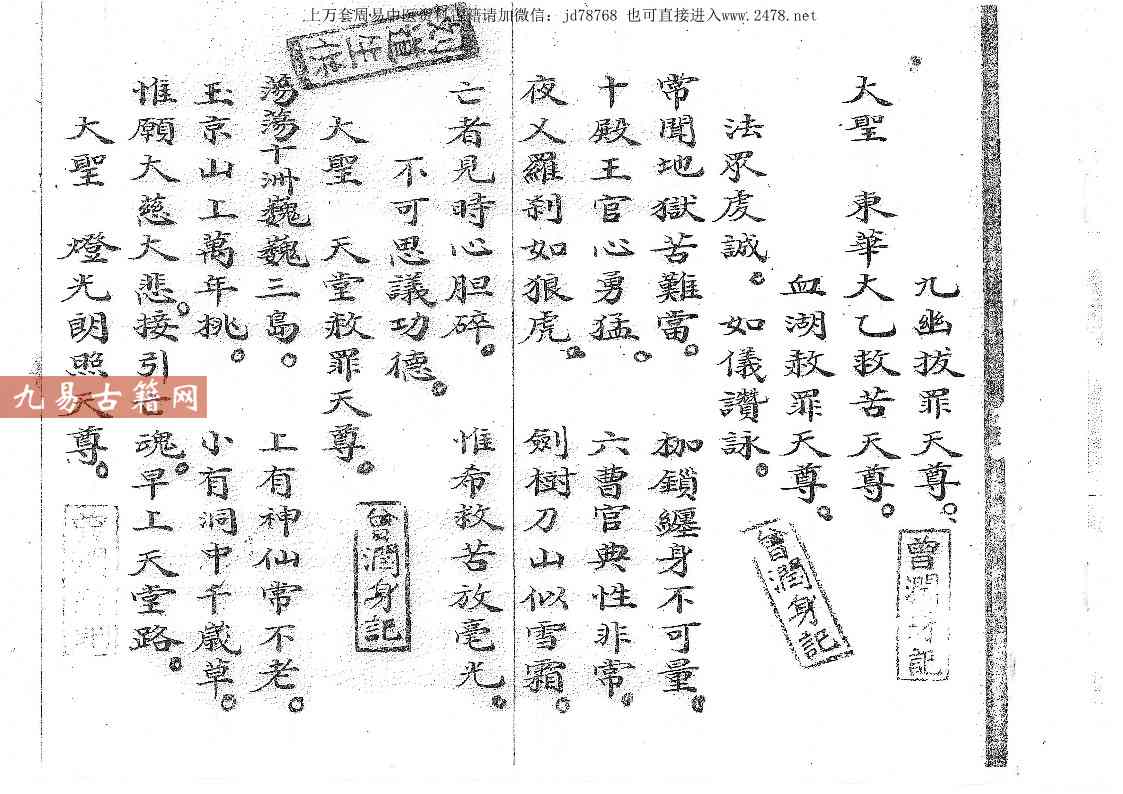 上万套周易中医资料古籍请加微信：jd78768 也可直接进入www.2478.net
九幽拔罪天尊。
大聖 東華大乙救苦天尊。
血湖赦罪天尊。
法眾虔誠。如儀讚詠。
常聞地獄苦難當。枷鎖纏身不可量。
十殿王官心勇猛。六曹官典性非常。
夜乂羅剎如狼虎。劍樹刀山似雪霜。
亡者見時心胆碎。惟希救苦放毫光。
不可思議功德。
大聖 天堂赦罪天尊。
蕩蕩十洲巍巍三島。上有神仙常不老。
玉京山上萬年桃。小有洞中千歲草。
惟願大慈大悲。接引亡魂。早上天堂路。
大聖 燈光朗照天尊。
曾潤身記
曾潤身記
曾潤身記
九易古籍网